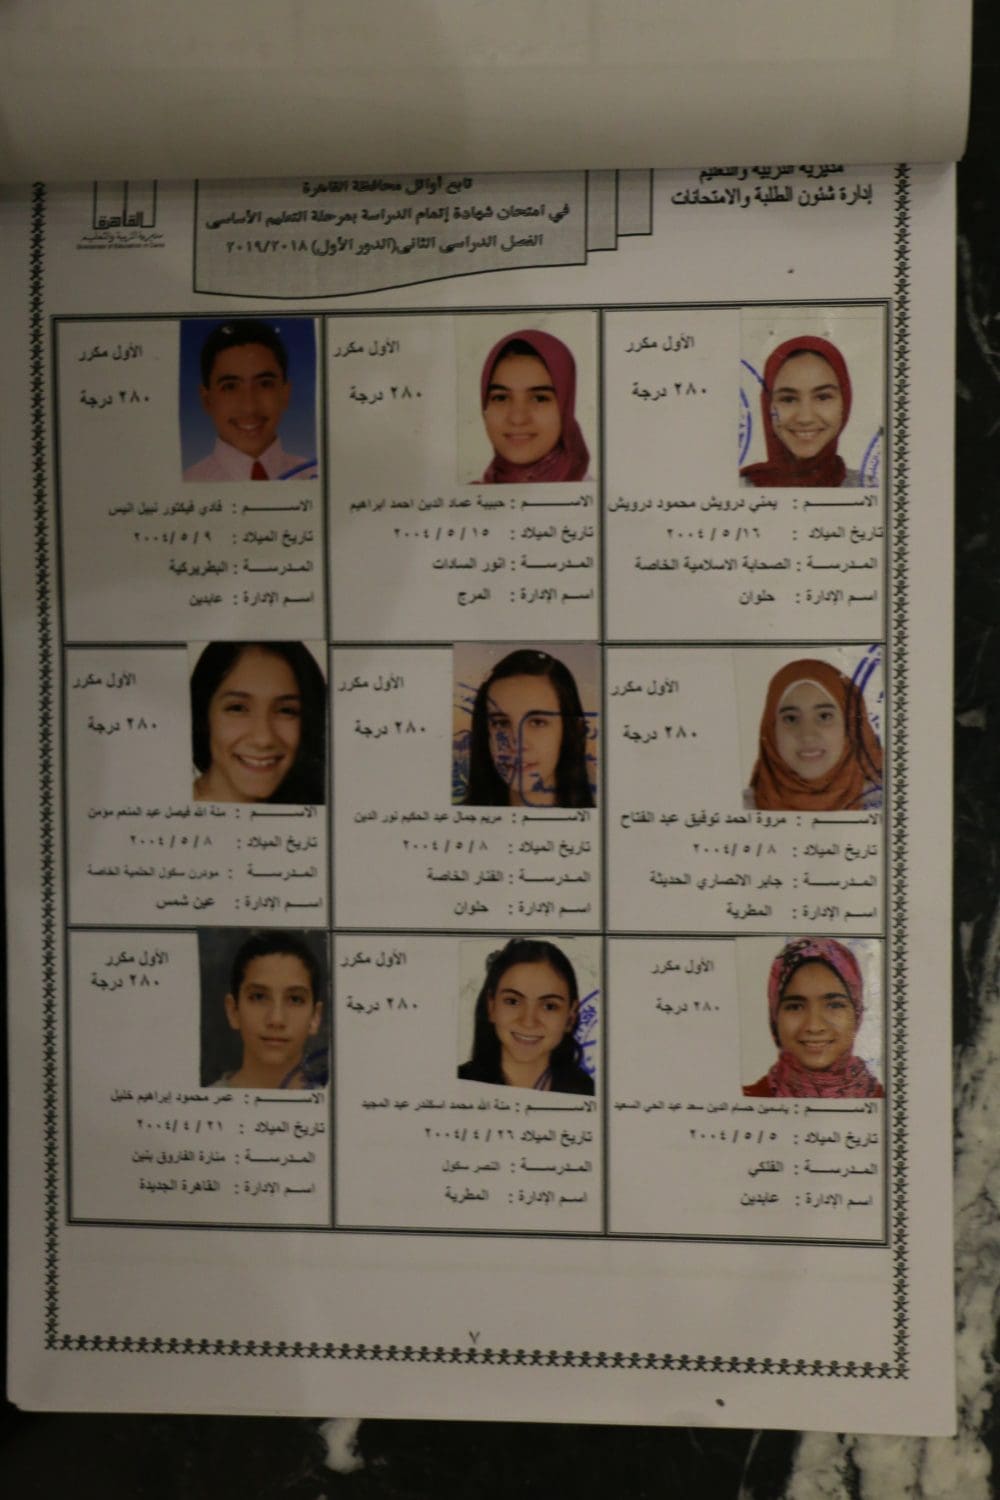 مديرية التربية والتعليم
إدارة شئون الطلبة والامتحانات
تابع أوائل محافظة القاهرة
في امتحان شهادة إتمام الدراسة بمرحلة التعليم الأساسى
الفصل الدراسى الثانى(الدور الأول) ٢٠١٩/٢٠١٨
القاهرة
مديرية التربية والتعليم
Directorate of Education in Cairo
الأول مكرر
٢٨٠ درجة
الاســـــم : يمني درويش محمود درويش
تاريخ الميلاد : ١٦/ ٥ / ٢٠٠٤
المدرســـة : الصحابة الاسلامية الخاصة
اسـم الإدارة : حلوان
الأول مكرر
٢٨٠ درجة
الاســـــم : حبيبة عماد الدين احمد ابراهيم
تاريخ الميلاد : ١٥ / ٥ / ٢٠٠٤
المدرســـة : انور السادات
اسـم الإدارة : المرج
الأول مكرر
٢٨٠ درجة
الاســـــم : فادي فيكتور نبيل انيس
تاريخ الميلاد : ٩ / ٥ /٢٠٠٤
المدرســـة : البطريركية
اسـم الإدارة : عابدين
الأول مكرر
٢٨٠ درجة
الاســـــم : مروة احمد توفيق عبد الفتاح
تاريخ الميلاد : ٨ / ٥ /٢٠٠٤
المدرســـة : جابر الانصاري الحديثة
اسـم الإدارة : المطرية
الأول مكرر
٢٨٠ درجة
الاســـــم : مريم جمال عبد الحكيم نور الدين
تاريخ الميلاد : ٨ / ٥ / ٢٠٠٤
المدرســـة : الفنار الخاصة
اسـم الإدارة : حلوان
الأول مكرر
٢٨٠ درجة
الاســـــم : منة الله فيصل عبد المنعم مؤمن
تاريخ الميلاد : ٨ / ٥ / ٢٠٠٤
المدرســـة : مودرن سكول الحلمية الخاصة
اسـم الإدارة : عين شمس
الأول مكرر
٢٨٠ درجة
الاســـــم : ياسمين حسام الدين سعد عبد الحي السعيد
تاريخ الميلاد : ٥ / ٥ / ٢٠٠٤
المدرســـة : الفلكي
اسـم الإدارة : عابدين
الأول مكرر
٢٨٠ درجة
الاســـــم : منة الله محمد اسكندر عبد المجيد
تاريخ الميلاد ٢٦ / ٤ /٢٠٠٤
المدرســـة : النصر سكول
اسـم الإدارة : المطرية
الأول مكرر
٢٨٠ درجة
الاســـــم : عمر محمود إبراهيم خليل
تاريخ الميلاد : ٢١ / ٤ /٢٠٠٤
المدرســـة : منارة الفاروق بنين
اسـم الإدارة : القاهرة الجديدة
٧